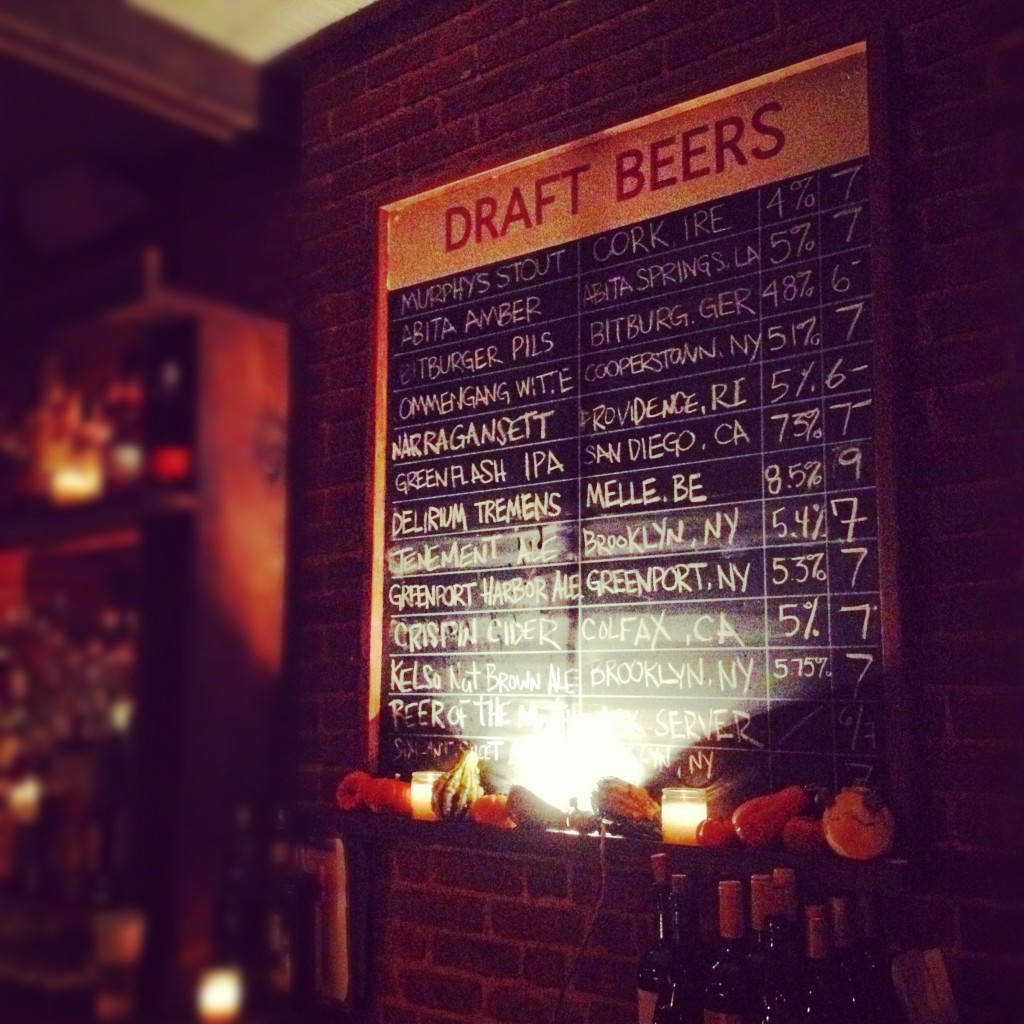 DRAFT BEERS
MURPHYS STOUT CORK. IRE 4% 7
ABITA AMBER ABITA SPRINGS. LA 5% 7
BITBURGER PILS BITBURG. GER 48% 6-
OMMENGANG WITTE COOPERSTOWN. NY 51% 7
NARRAGANSETT PROVIDENCE, RI 5% 6-
GREEN FLASH IPA SAN DIEGO, CA 73% 7
DELIRIUM TREMENS MELLE. BE 8.5% 9
TENEMENT ALE BROOKLYN, NY 5.4% 7
GREENPORT HARBOR ALE GREENPORT, NY 53% 7
CRISPIN CIDER COLFAX, CA 5% 7
KELSO NUT BROWN ALE BROOKLYN. NY 5.75% 7
BEER OF THE SERVER / 6/7
NY 7